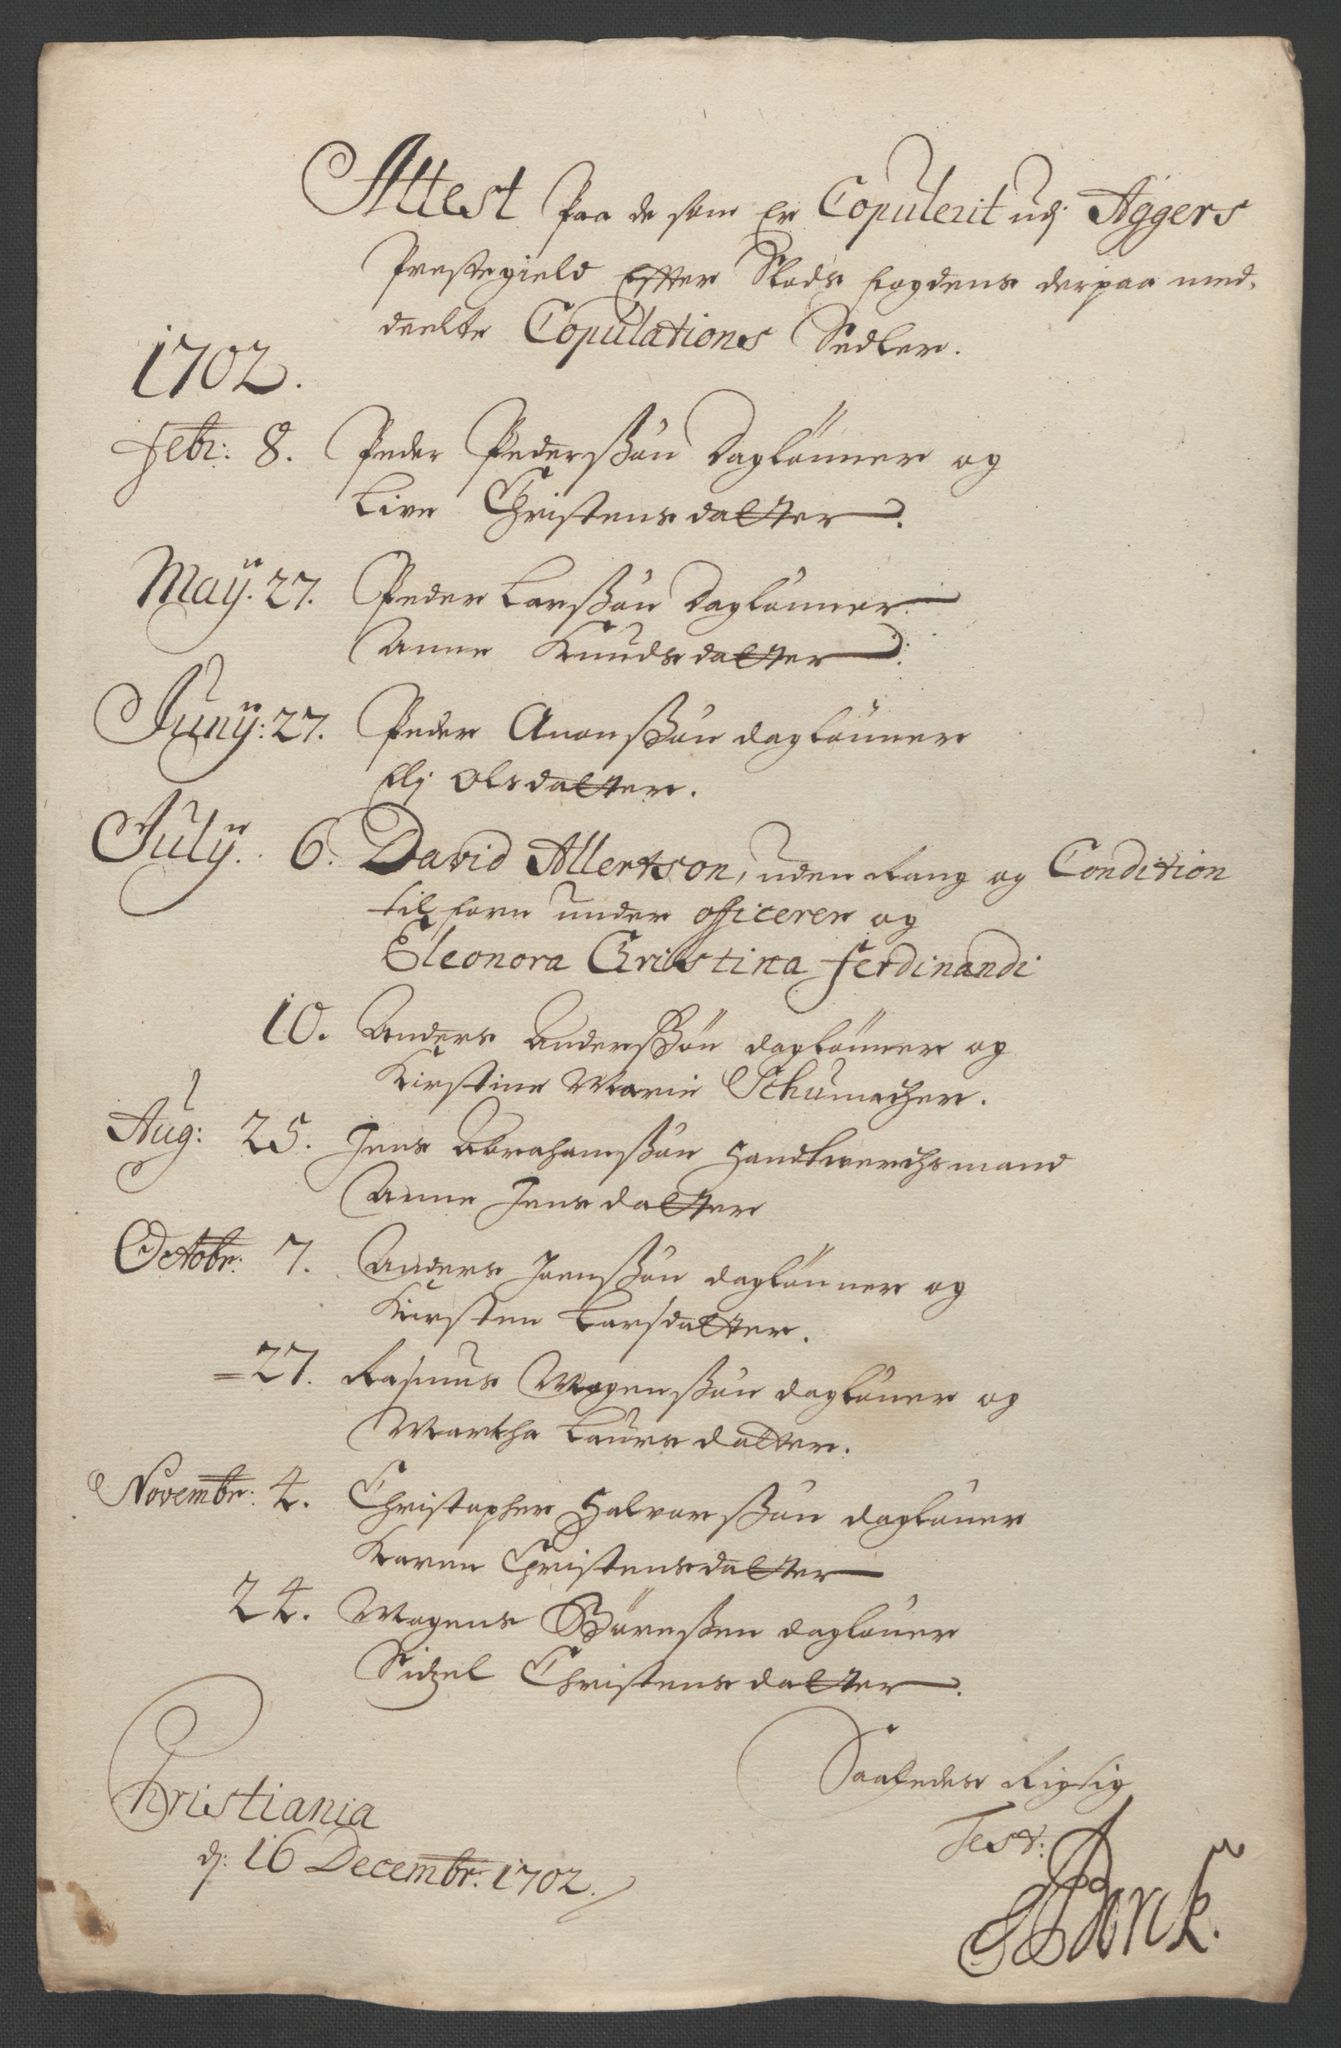 Attest Paa de som Er Copulerit udj Aggers
Prestegield Effter Slods fogdens derpaa med,
deelte Copulations Sedler.
1702.
Febr: 8. Peder Pederssøn Daglønner og
Live Christensdatter.
Maÿ. 27. Peder Larssøn Daglønner
Anne Knudsdatter.
Junÿ: 27. Peder Anonssøn daglønner
Elj Olsdatter.
Julÿ. 6. David Allertson, uden Rang og Condition
tilforn under officerer og
Eleonora Christina Ferdinandi
10. Anders Anderssøn daglønner og
Kirstine Marie Schumacher.
Aug: 25. Jens Abrahamssøn Handtwerchsmand
Anne Jensdatter
Octobr: 7. Anders Joenssøn daglønner og
Kirsten Larsdatter.
=27. Rasmus Mogenssøn dagløner og
Martha Laursdatter.
Novembr: 4. Christopher Halvorssøn dagløner
Karen Christensdatter
24. Mogens Børessen dagløner
Sidzel Christensdatter.
Saaledes Rigtig
Christiania
Test:
dj: 16 Decembr: 1702.